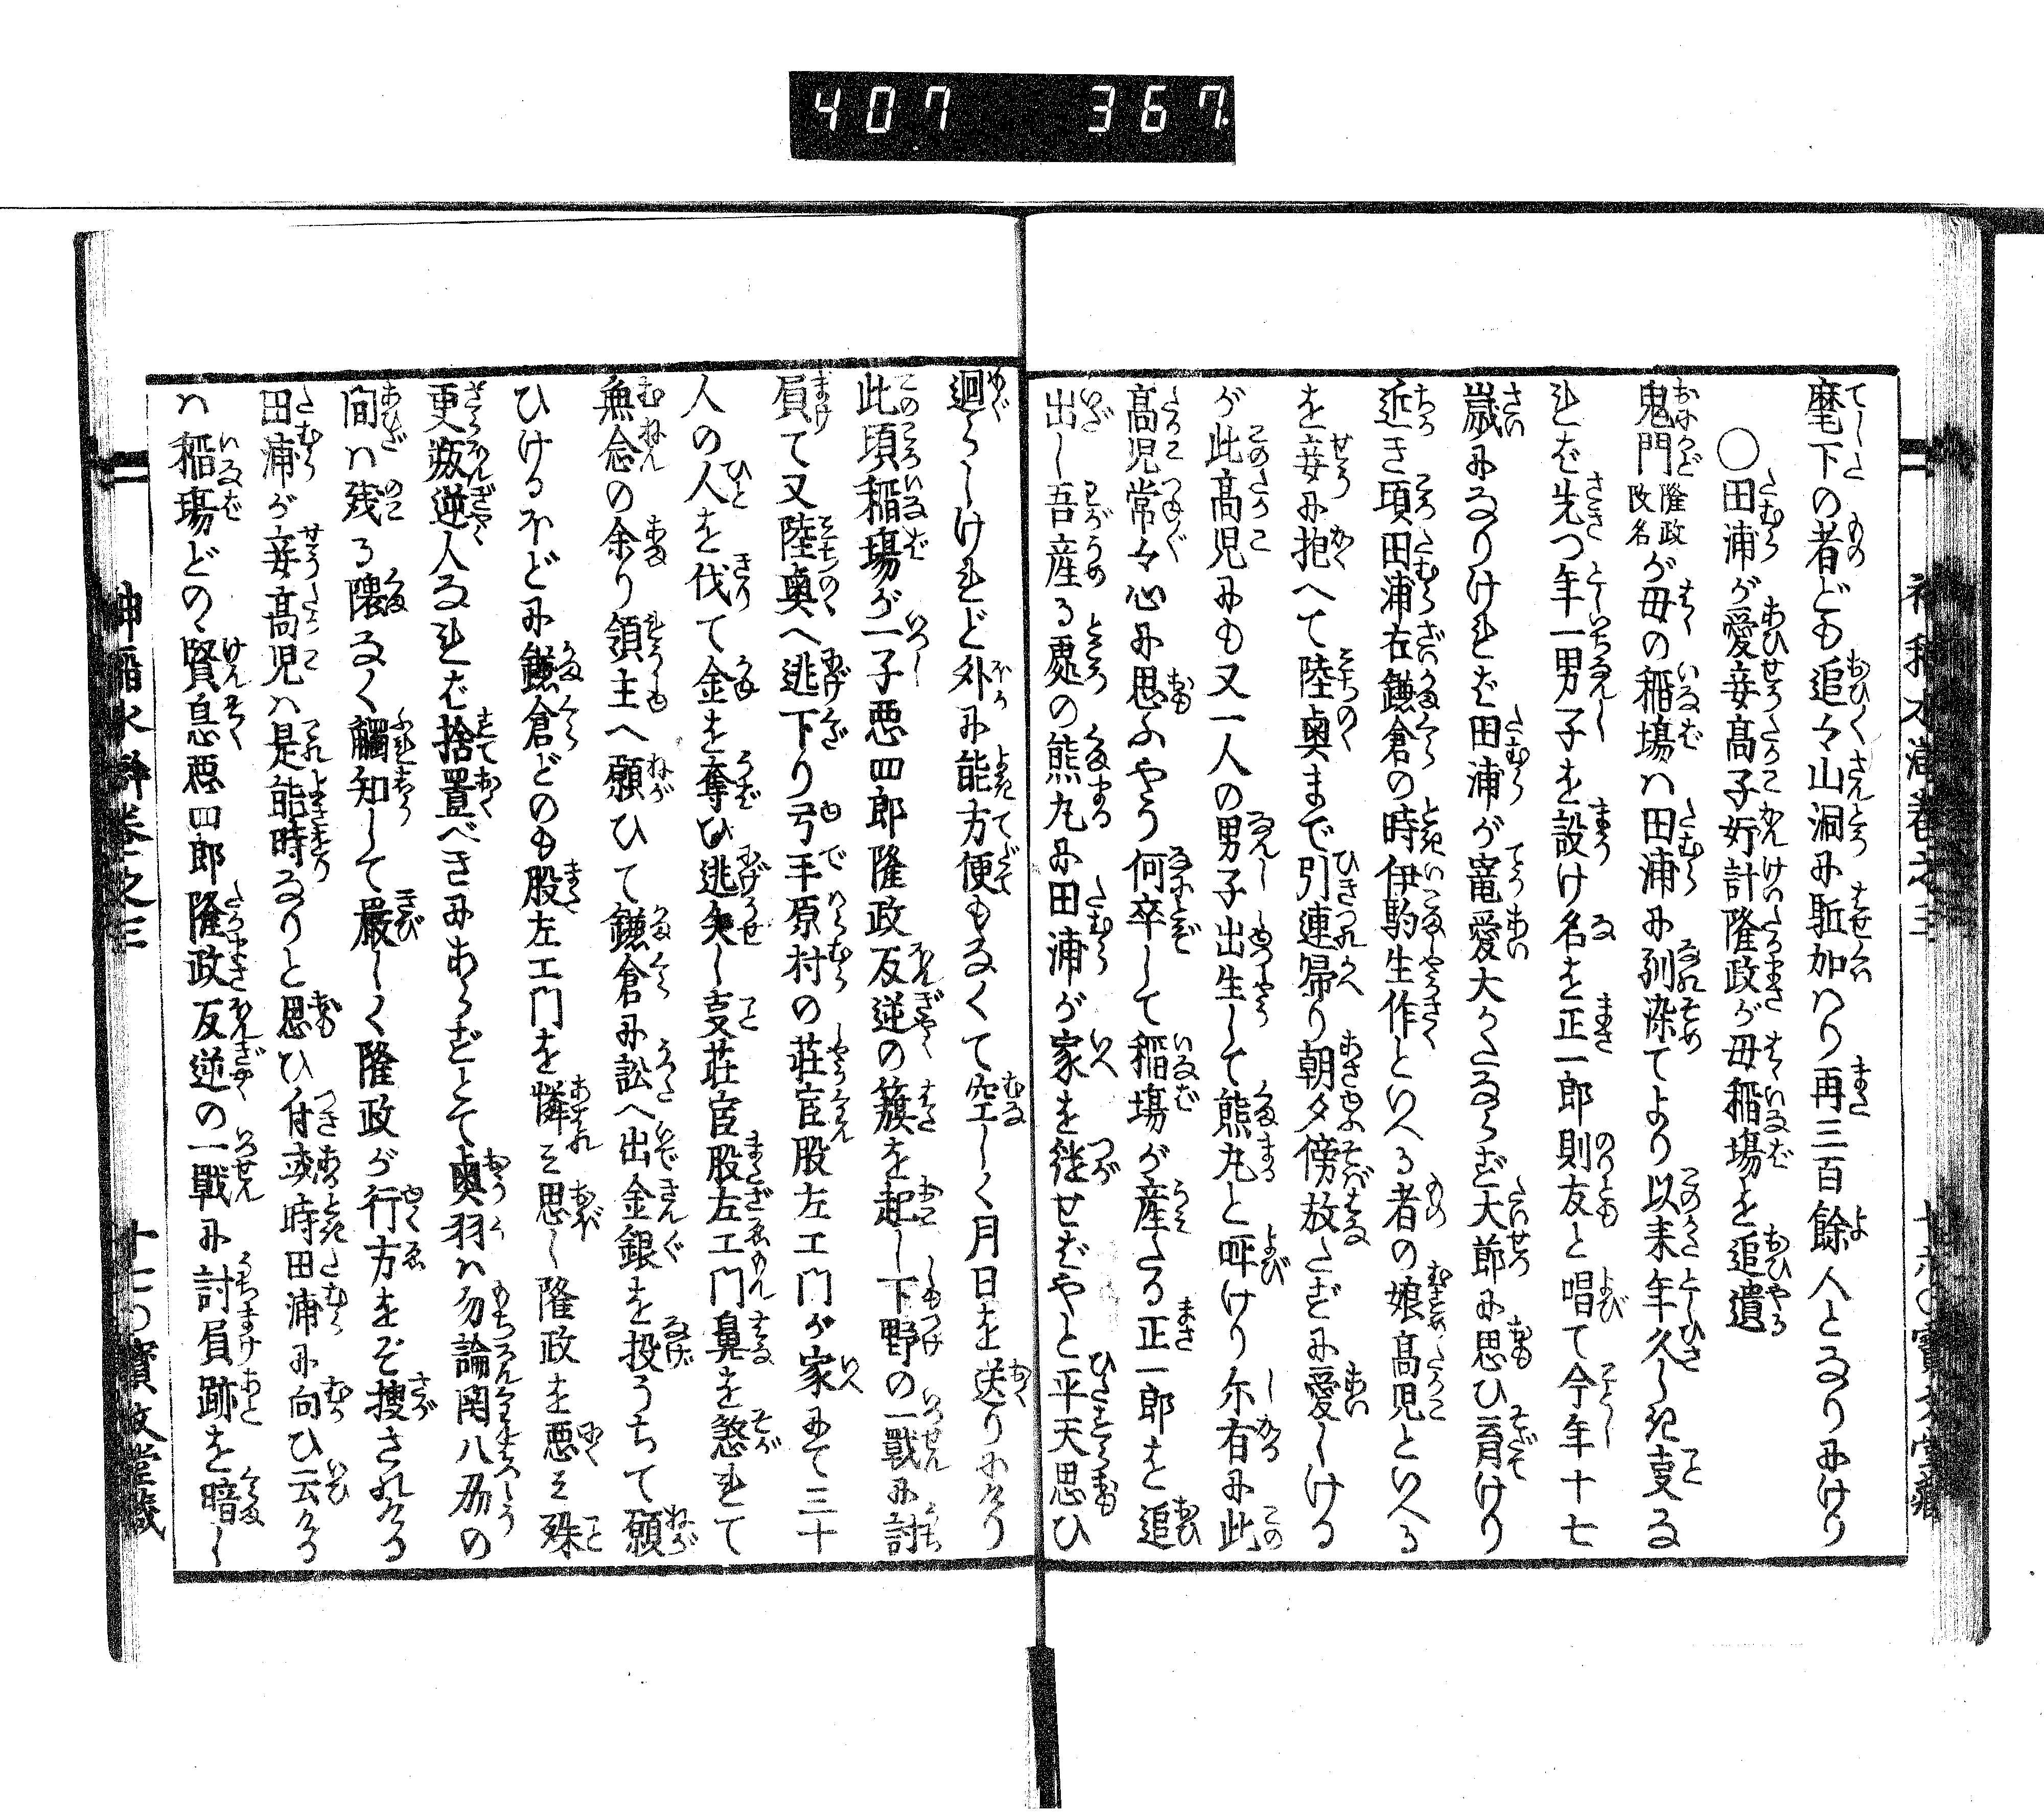 407 367.
麾下の者ども追々山洞に駈加はり再三百餘人となりにけり
○田浦が愛妾高子奸計隆政が母稲場を追遣
鬼門隆政改名が母の稲場ハ田浦に馴染てより以来年久しき叓な
れバ先つ年一男子を設け名を正一郎則友と唱て今年十七
歳になりけれバ田浦が寵愛大かたならず大節に思ひ育けり
近き頃田浦右鎌倉の時伊駒生作といへる者の娘高児といへる
を妾に抱へて陸奥まで引連帰り朝夕傍放さずに愛しける
が此高児にも又一人の男子出生して熊丸と呼けり尓有に此
高児常々心に思ふやう何卒して稲場が産たる正一郎を追
出し吾産る處の熊丸に田浦が家を継せばやと平天思ひ
廻らしけれど外に能方便もなくて空しく月日を送りにけり
此頃稲場が一子悪四郎隆政反逆の籏を起し下野の一戦に討
負て又陸奥へ逃下り弓手原村の荘官股左エ門が家にて三十
人の人を伐て金を奪ひ逃失し叓荘官股左エ門鼻を慫れて
無念の余り領主へ願ひて鎌倉に訟へ出金銀を投うちて願
ひけるほどに鎌倉どのも股左エ門を憐ミ思し隆政を悪ミ殊
更叛逆人なれバ捨置べきにあらずとて奥羽ハ勿論関八州の
間ハ残る隈なく觸知して嚴しく隆政が行方をぞ捜されける
田浦が妾高児ハ是能時なりと思ひ付或時田浦に向ひ云ける
ハ稲場どのゝ賢息悪四郎隆政反逆の一戰に討負跡を暗し
神稲水滸巻之三
十七〇寳文堂藏